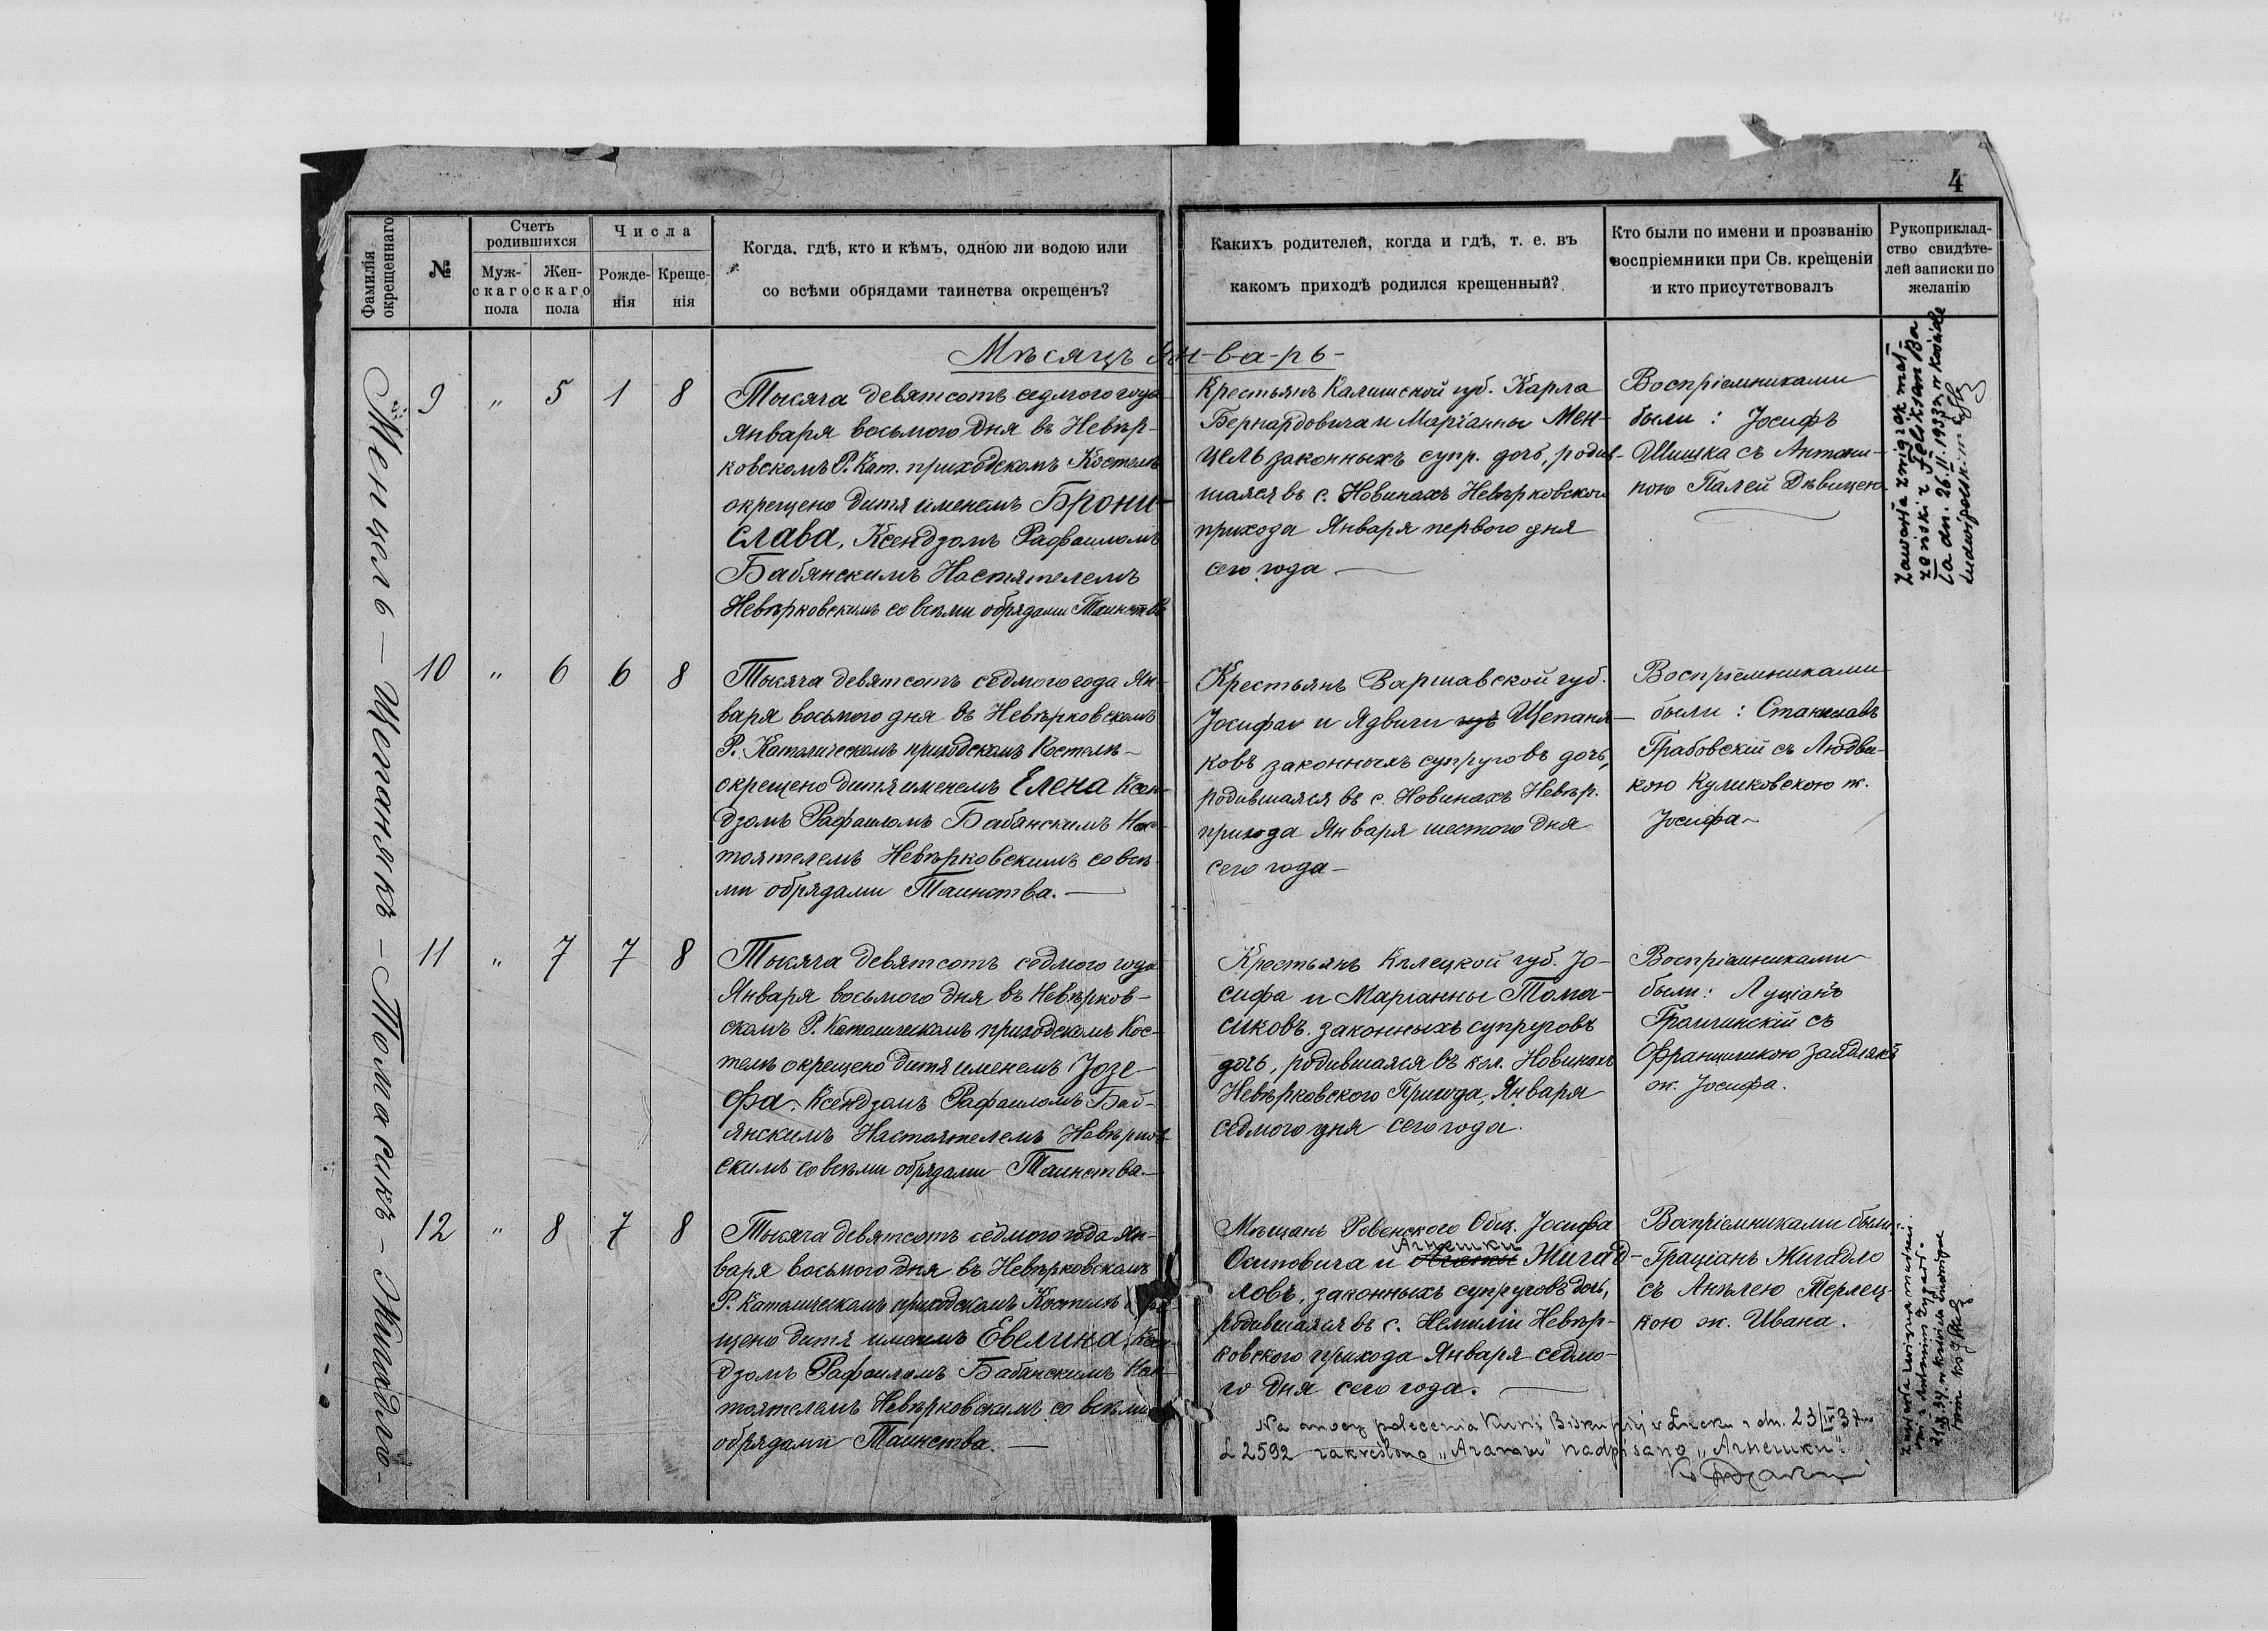 4
Фамилія окрещеннаго
№
Счетъ родившихся
Муж-скаго пола
Жен-скаго пола
Числа
Рожде-нія
Креще-нія
Когда, гдѣ, кто и кѣмъ, одною ли водою или
со всѣми обрядами таинства окрещенъ?
Какихъ родителей, когда и гдѣ, т. е. въ
какомъ приходѣ родился крещенный?
Кто были по имени и прозванію
воспріемники при Св. крещеніи
и кто присутствовалъ
Рукоприклад-
ство свидѣте-
лей записки по
желанію
Мѣсяцъ Ян-в-а-рь-
Менцель - Щепаникъ - Томасикъ - Жигадло -
9 " 5 1 8
Тысяча девятсотъ седмого года
Января восьмого дня въ Невѣр-
ковскомъ Р. Кат. приходскомъ Костелѣ
окрещено дитя именемъ Брони-
слава, Ксендзомъ Рафаиломъ
Бабянскимъ Настятелемъ
Невѣрковскимъ со всѣми обрядами Таинства
Крестьянъ Калишской губ. Карла
Бернардовича и Маріанны Мен-
цель законныхъ супр. дочь, родив-
шаяся въ с. Новинахъ Невѣрковского
прихода Января первого дня
сего года —
Воспріемниками
были: Іосифъ
Шишка съ Антони-
ною Палей Дѣвицею
Zawarła związek mał-
żeński z Feliksem
dn. 26.II.1933 r. w kościele
Ludwipolskim
10 " 6 6 8
Тысяча девятсотъ седмого года Ян-
варя восьмого дня въ Невѣрковскомъ
Р. Католическомъ приходскомъ Костелѣ
окрещено дитя именемъ Елена Ксен-
дзомъ Рафаиломъ Бабянскимъ Нас-
тоятелемъ Невѣрковскимъ со всѣ-
ми обрядами Таинства. —
Крестьянъ Варшавской губ.
Іосифа и Ядвиги Щепани-
ковъ законныхъ супруговъ дочь,
родившаяся въ с. Новинахъ Невѣр.
прихода Января шестого дня
сего года —
Воспріемниками
были: Станиславъ
Грабовскій съ Людви-
кою Куликовскою ж.
Іосифа —
11 " 7 7 8
Тысяча девятсотъ седмого года
Января восьмого дня въ Невѣрков-
скомъ Р. Католическомъ приходскомъ Кос-
телѣ окрещено дитя именемъ Іозе-
фа. Ксендзомъ Рафаиломъ Баб-
янскимъ Настоятелемъ Невѣрков-
скимъ со всѣми обрядами Таинства —
Крестьянъ Кѣлецкой губ. Іо-
сифа и Маріанны Тома-
сиковъ законныхъ супруговъ
дочь, родившаяся въ кол. Новинахъ
Невѣрковского Прихода, Января
седмого дня сего года.
Воспріемниками
были: Луціанъ
съ
Францишкою
ж. Іосифа.
12 " 8 7 8
Тысяча девятсотъ седмого года Ян-
варя восьмого дня въ Невѣрковскомъ
Р. Католическомъ приходскомъ Костелѣ окре-
щено дитя именемъ Евелина, Ксен-
дзомъ Рафаиломъ Бабянскимъ Нас-
тоятелемъ Невѣрковскимъ со всѣми
обрядами Таинства. —
Мѣщанъ Ровенского Общ. Іосифа
Агнешки
Осиповича и Агаты Жигад-
ловъ, законныхъ супруговъ дочь,
родившаяся въ с. Немилии Невѣр-
ковского прихода Января седмо-
го дня сего года. —
Воспріемниками были:
Граціанъ Жигадло
съ Анѣлею Терлец-
кою ж. Ивана.
Na mocy polecenia Kurii Biskupiej w Łucku z dn. 23/IV 37
L 2592 zakreślono „Агаты" nadpisano „Агнешки".